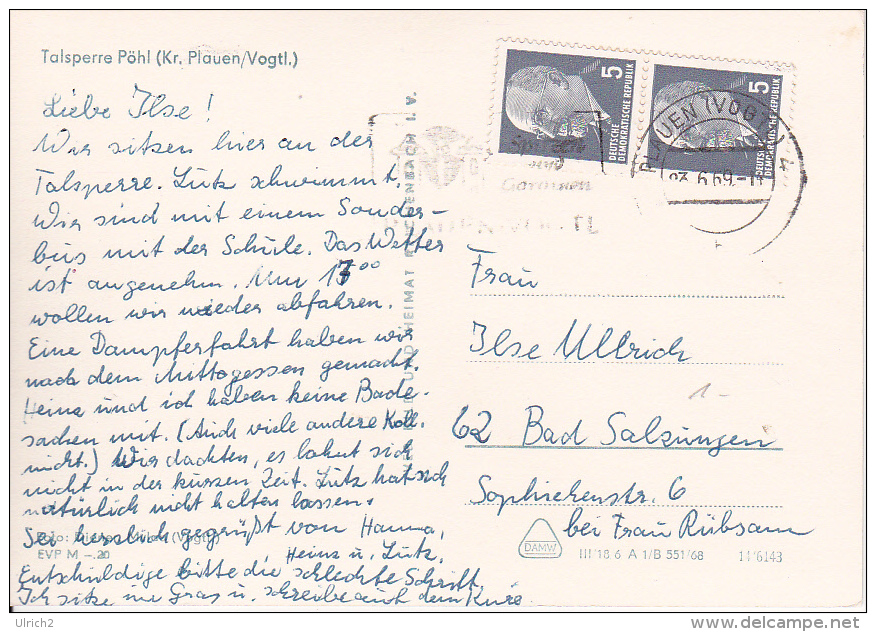 Talsperre Pöhl (Kr. Plauen/Vogtl.)
Liebe Ilse!
Wir sitzen hier an der
Talsperre. Lutz schwimmt.
Wir sind mit einem Sonder-
bus mit der Schule. Das Wetter
ist angenehm. Um 17⁰⁰
wollen wir wieder abfahren.
Eine Dampferfahrt haben wir
nach dem Mittagessen gemacht.
Heinz und ich haben keine Bade-
sachen mit. (Auch viele andere Koll.
nicht.) Wir dachten, es lohnt sich
nicht in der kurzen Zeit. Lutz hat sich
natürlich nicht halten lassen.
Sei herzlich gegrüßt von Hanna,
Heinz u. Lutz.
Entschuldige bitte die schlechte Schrift.
Ich sitze im Gras u. schreibe auf dem Knie.
(Vogtl.)
EVP M –.20
HEIMAT REICHENBACH I. V.
5
DEUTSCHE
DEMOKRATISCHE REPUBLIK
5
DEUTSCHE
DEMOKRATISCHE REPUBLIK
PLAUEN (VOGTL)
Gardinen
Frau
Ilse Ullrich
1-
62 Bad Salzungen
Sophienstr. 6
bei Frau Rübsam
DAMW
III 18 6 A 1/B 551/68
14 6143
© Ulrich2
www.delcampe.net